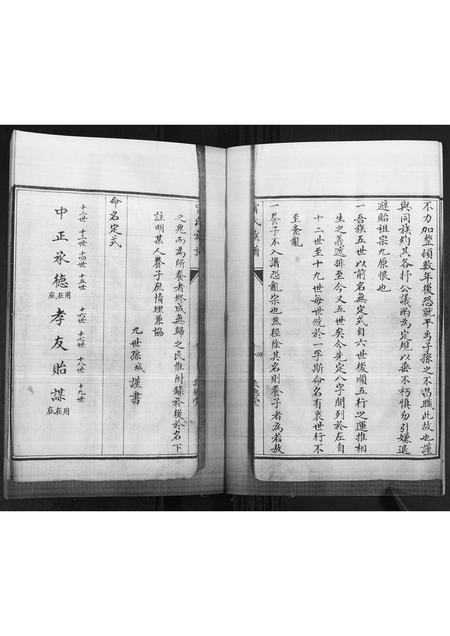 不力加整頓數年後恐就平焉子孫之不昌職此故也謹
與同族約其各抒公議酌為定規以垂不朽慎勿引嫌退
避貽祖宗九原恨也
一吾族五世以前名無定式自六世後順五行之運推相
生之義遞排至今又五世矣今先定八字開列於左自
十二世至十九世每世統於一字斯命名有衷世行不
至紊亂
一養子不入譜恐亂宗也然徑除其名則養子者為若敖
之鬼而為所養者終成無歸之民惟附錄於後於名下
註明某人養子庶情理兼協
九世孫城謹書
命名定式
十二世 中
十三世 正
十四世 承
十五世 德 用在底
十六世 孝
十七世 友
十八世 貽
十九世 謀 用在底
氏族譜
四